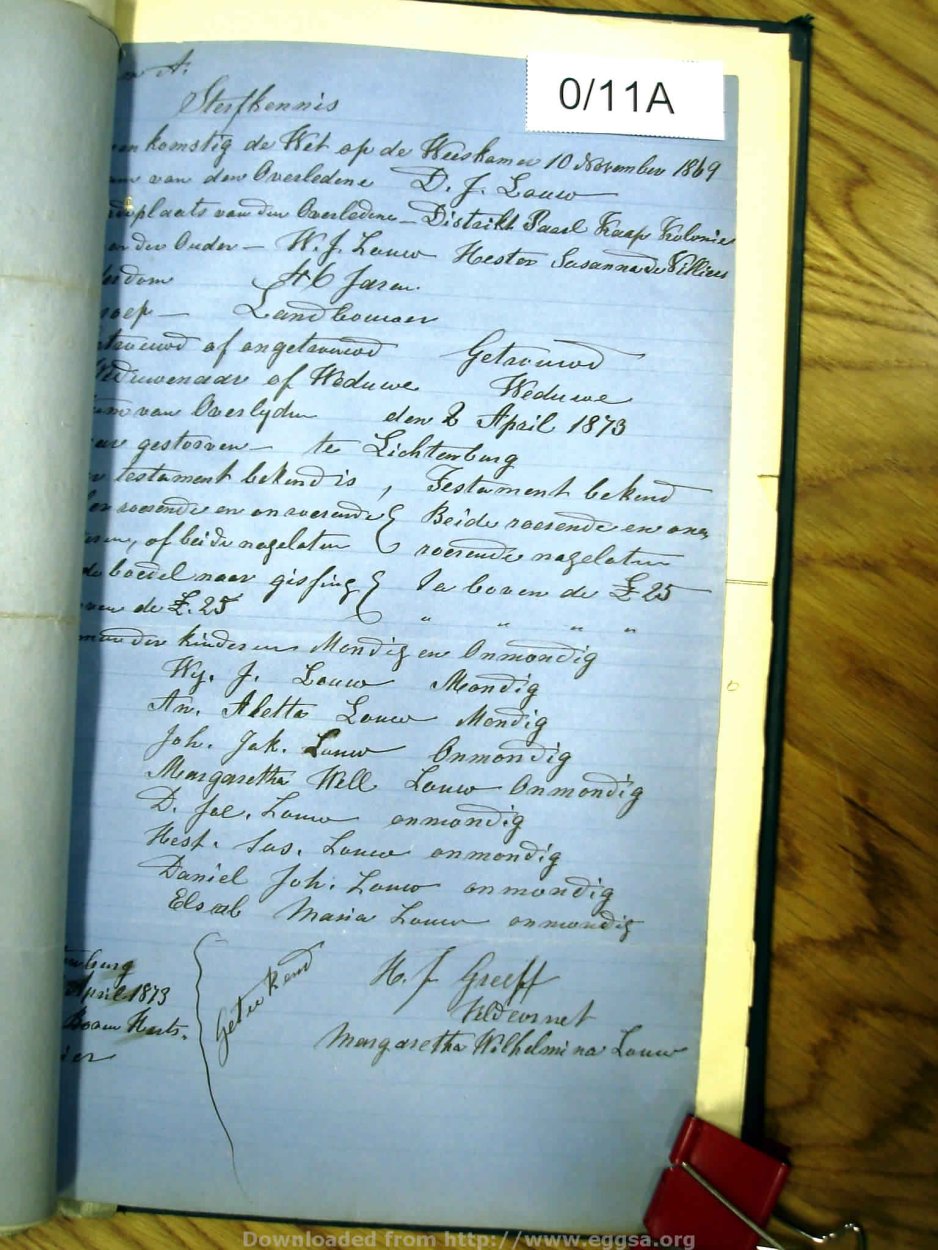 A.
0/11A
Sterfkennis
komstig de Wet op de Weeskamer 10 November 1869
van den Overledene D. J. Louw
plaats van den Overledene - Distrikt Paarl Kaap Kolonie
der Ouder - W. J. Louw Hester Susanna de Villiers
dom 46 Jaren
oep - Landbouwer
trouwd of ongetrouwd Getrouwd
Weduwenaar of Weduwe Weduwe
van Overlyden den 2 April 1873
gestorven - te Lichtenburg
testament bekend is, Testament bekend
roerende en onroerende Beide roerende en on
of beide nagelaten roerende nagelaten
boedel naar gissing Ja boven de £25
de £.25 " " " "
der kinderen Mondig en Onmondig
Wy. J. Louw Mondig
An. Aletta Louw Mondig
Joh. Jak. Louw Onmondig
Margaretha Well Louw Onmondig
D. Jac. Louw onmondig
Hest. Sus. Louw onmondig
Daniel Joh. Louw onmondig
Elsab Maria Louw onmondig
burg
April 1873
Boven Harts.
ier
Getekend
H. J. Greeff
Veldcornet
Margaretha Wilhelmina Louw
Downloaded from http://www.eggsa.org